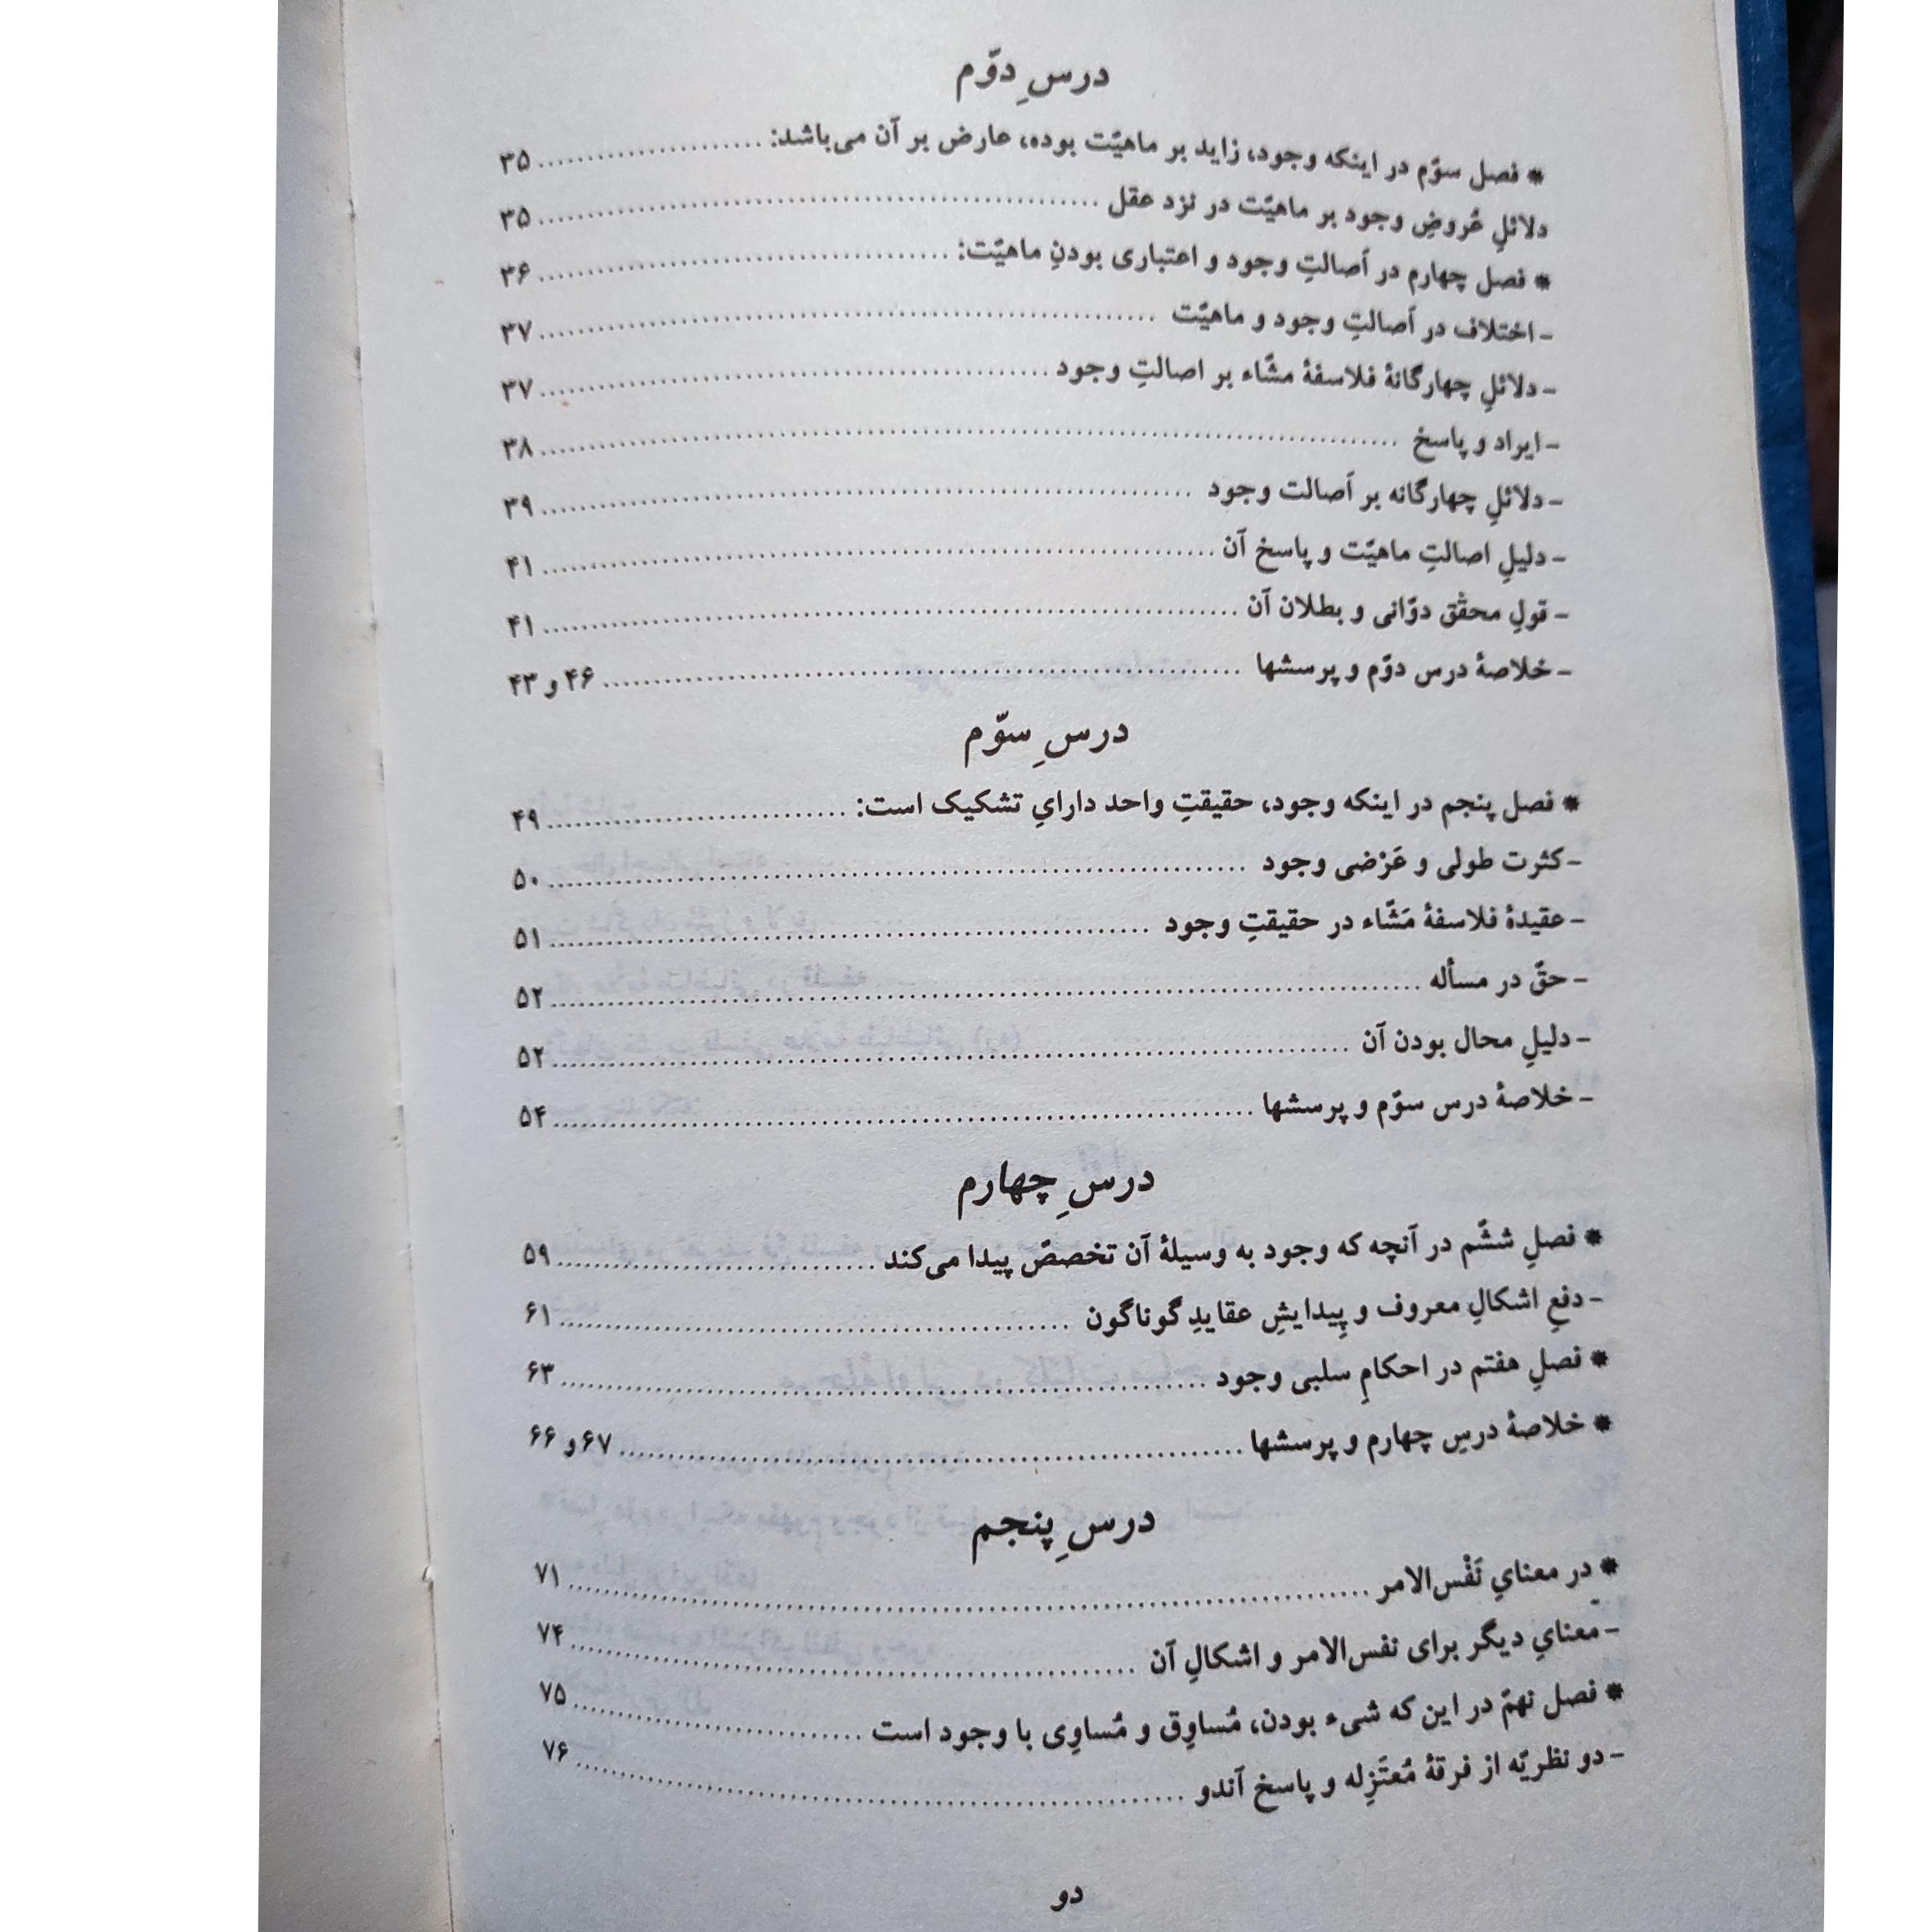 درسِ دوّم
* فصل سوّم در اینکه وجود، زاید بر ماهیّت بوده، عارض بر آن می‌باشد: ۳۵
دلائلِ عُروضِ وجود بر ماهیّت در نزد عقل ۳۵
* فصل چهارم در اَصالتِ وجود و اعتباری بودنِ ماهیّت: ۳۶
- اختلاف در اَصالتِ وجود و ماهیّت ۳۷
- دلائلِ چهارگانهٔ فلاسفهٔ مشّاء بر اصالتِ وجود ۳۷
- ایراد و پاسخ ۳۸
- دلائلِ چهارگانه بر اَصالت وجود ۳۹
- دلیلِ اصالتِ ماهیّت و پاسخ آن ۴۱
- قولِ محقّق دوّانی و بطلان آن ۴۱
- خلاصهٔ درس دوّم و پرسشها ۴۶ و ۴۳
درسِ سوّم
* فصل پنجم در اینکه وجود، حقیقتِ واحد دارايِ تشکیک است: ۴۹
- کثرت طولی و عَرْضی وجود ۵۰
- عقیدهٔ فلاسفهٔ مَشّاء در حقیقتِ وجود ۵۱
- حقّ در مسأله ۵۲
- دلیلِ محال بودن آن ۵۲
- خلاصهٔ درس سوّم و پرسشها ۵۴
درسِ چهارم
* فصلِ ششّم در آنچه که وجود به وسیلهٔ آن تخصصّ پیدا می‌کند ۵۹
- دفعِ اشکالِ معروف و پِیدایشِ عقایدِ گوناگون ۶۱
* فصلِ هفتم در احکامِ سلبی وجود ۶۳
* خلاصهٔ درسِ چهارم و پرسشها ۶۷ و ۶۶
درسِ پنجم
* در معنايِ نَفْس‌الامر ۷۱
- معنايِ دیگر برای نفس‌الامر و اشکالِ آن ۷۴
* فصل نهمّ در این که شیء بودن، مُساوِق و مُساوِی با وجود است ۷۵
- دو نظریّه از فرقهٔ مُعتَزِله و پاسخ آندو ۷۶
دو